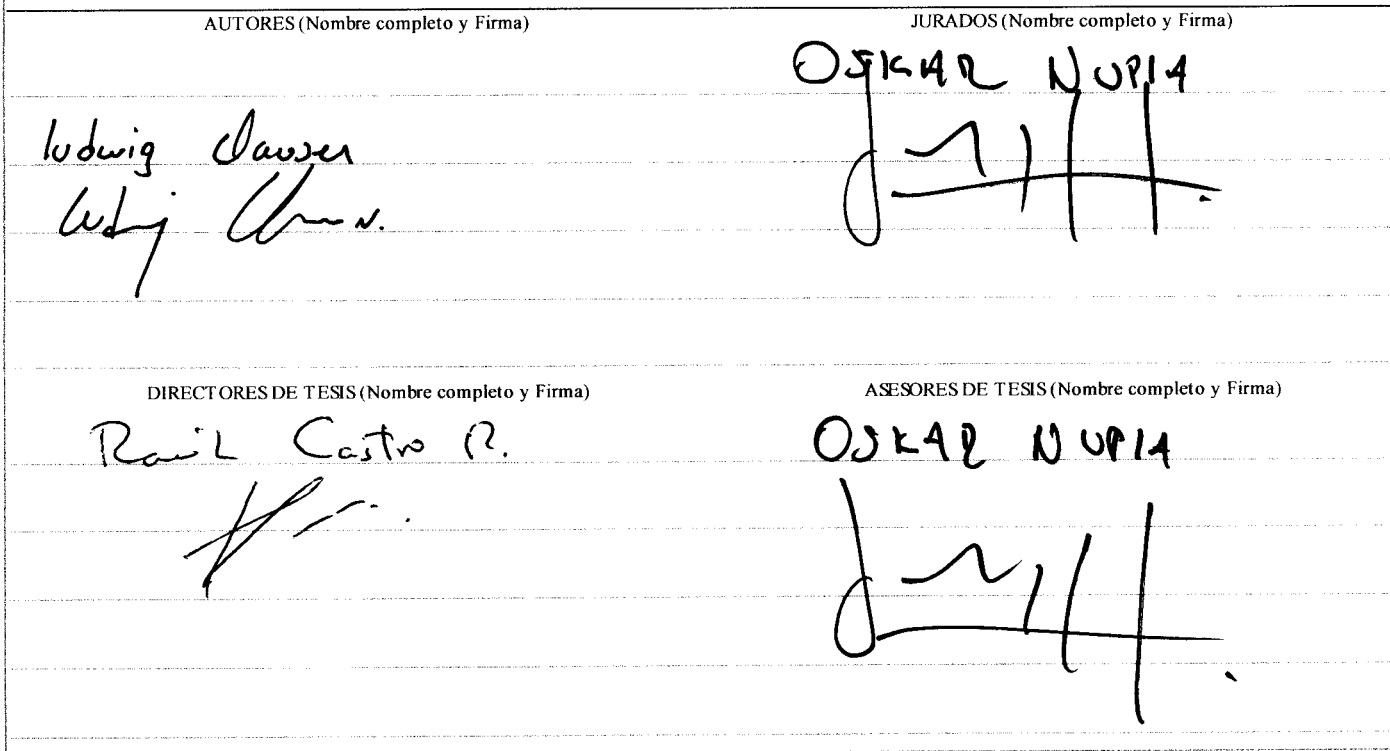 AUTORES (Nombre completo y Firma)
ludwig
JURADOS (Nombre completo y Firma)
OSKAR NUPIA
DIRECTORES DE TESIS (Nombre completo y Firma)
Raúl Castro R.
ASESORES DE TESIS (Nombre completo y Firma)
OSKAR NUPIA